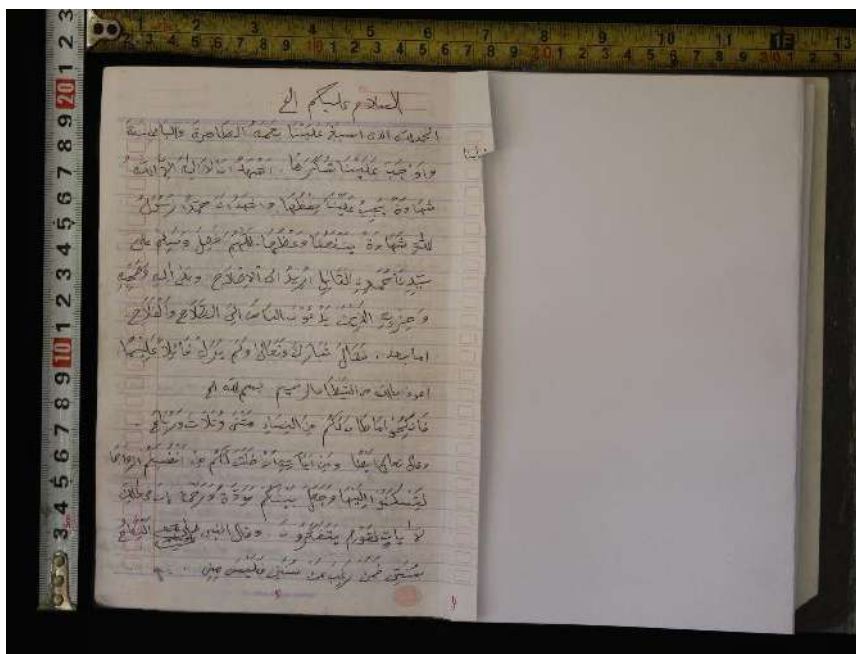 السلام عليكم الخ
الحمد لله الذى اسبغ علينا نعمه الظاهرة والباطنة
واوجب علينا شكرها . اشهد ان لا اله الا الله
شهادة يجب علينا حفظها واشهد ان محمدا رسول
الله شهادة وعظمها . اللهم صل وسلم على
سيدنا محمد القايل اريد الا الاصلاح وعلى اله وصحبه
وحزبه الذين يدعون الناس الى الصلاح والفلاح
اما بعد . فقال تبارك وتعالى ولم يزل قائلا عليما
اعوذ بالله من الشيطان الرجيم بسم الله الخ
فانكحوا ما طاب لكم من النساء مثنى وثلاث ورباع .
وقال تعالى ايضا ومن اياته ان خلق لكم من انفسكم ازواجا
لتسكنوا اليها وجعل بينكم مودة ورحمة ان فى ذلك
لآيات لقوم يتفكرون . وقال النبي النكاح
سنتى فمن رغب عن سنتى فليس منى ..